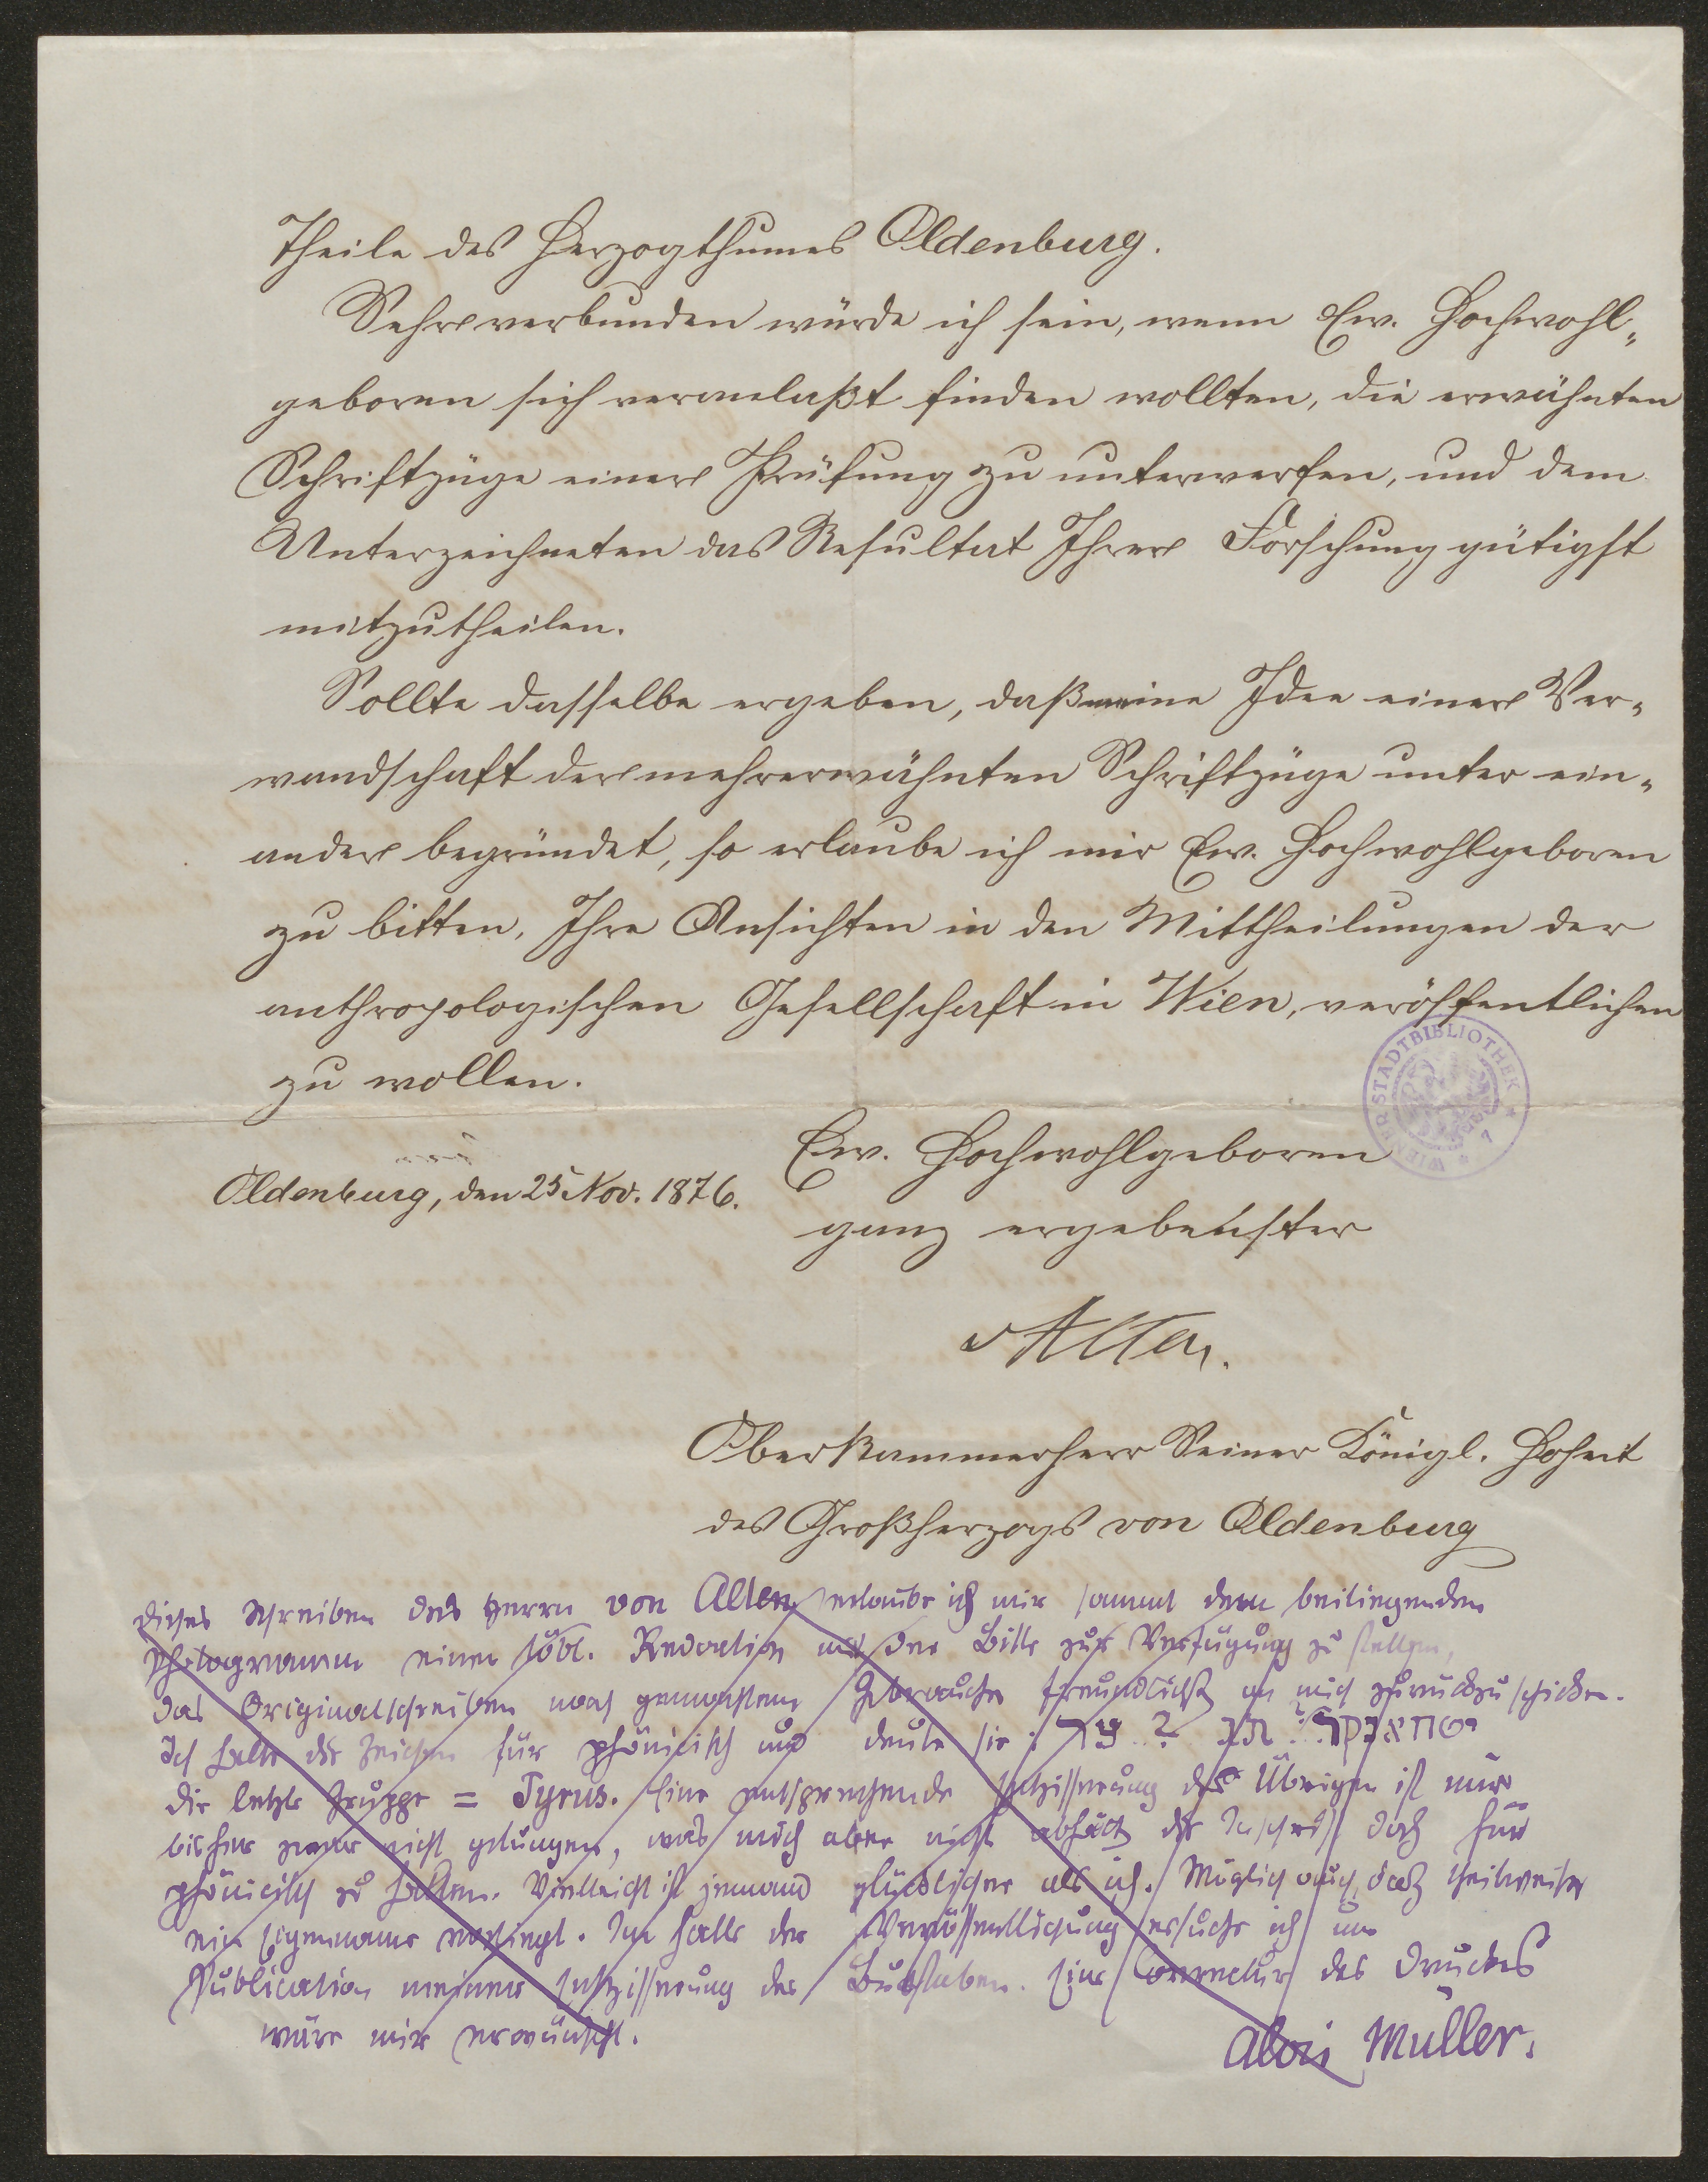 Theile des Herzogthumes Oldenburg.
Sehr verbunden würde ich sein, wenn Ew. Hochwohl-
geboren sich veranlaßt finden wollten, die erwähnten
Schriftzüge einer Prüfung zu unterwerfen, und dem
Unterzeichneten das Resultat Ihrer Forschung gütigst
mitzutheilen.
Sollte dasselbe ergeben, daß meine Idee einer Ver-
wandschaft der mehrerwähnten Schriftzüge unter ein-
ander begründet, so erlaube ich mir Ew. Hochwohlgeboren
zu bitten, Ihre Ansichten in den Mittheilungen der
anthropologischen Gesellschaft in Wien, veröffentlichen
zu wollen.
WIENER STADTBIBLIOTHEK
Ew. Hochwohlgeboren
Oldenburg, den 25 Nov. 1876.
ganz ergebenster
vAlten.
Oberkammerherr Seiner Königl. Hoheit
des Großherzogs von Oldenburg
Dieses Schreiben des Herrn von Alten erlaube ich mir sammt dem beiliegenden
Photogramm einer löbl. Redaction mit der Bitte zur Verfügung zu stellen,
das Originalschreiben nach gemachtem Gebrauche freundlichst an mich zurückzuschicken.
Ich halte die Zeichen für phönicisch und deute sie :
die letzte Gruppe = Tyrus. Eine entsprechende Entzifferung des Übrigen ist mir
bisher zwar nicht gelungen, was mich aber nicht abhält die Inschrift doch für
phönicisch zu halten. Vielleicht ist jemand glücklicher als ich. Möglich auch, daß theilweise
ein Eigenname vorliegt. Im Falle der Veröffentlichung ersuche ich um
Publication meiner Entzifferung der Buchstaben. Eine Correctur des Druckes
wäre mir erwünscht.
Alois Müller.